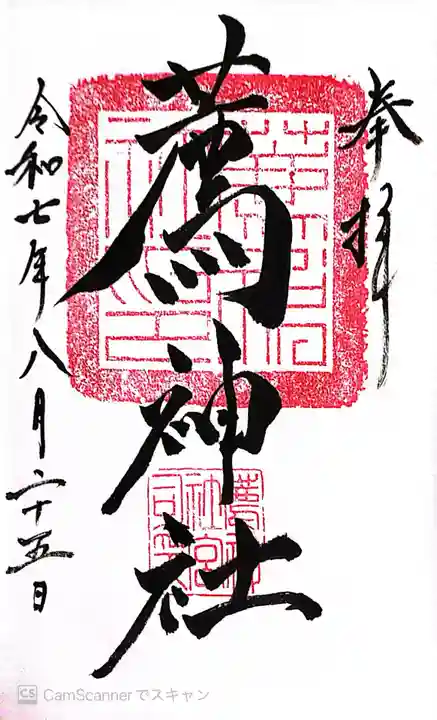 奉拝
薦神社
令和七年八月二十五日
CS CamScannerでスキャン